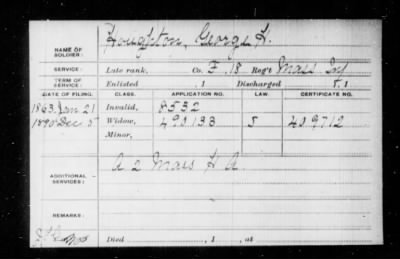 NAME OF SOLDIER: Houghton, George H.
SERVICE: Late rank, Co. F, 18 Reg't Mass Inf
TERM OF SERVICE: Enlisted , 1 Discharged , 1
DATE OF FILING. CLASS. APPLICATION NO. LAW. CERTIFICATE NO.
1863 Jan 21 Invalid, 8532
1890 Dec 5 Widow, 490138 S 409712
Minor,
ADDITIONAL SERVICES: A 2 Mass H A
REMARKS:
Died , 1 , at